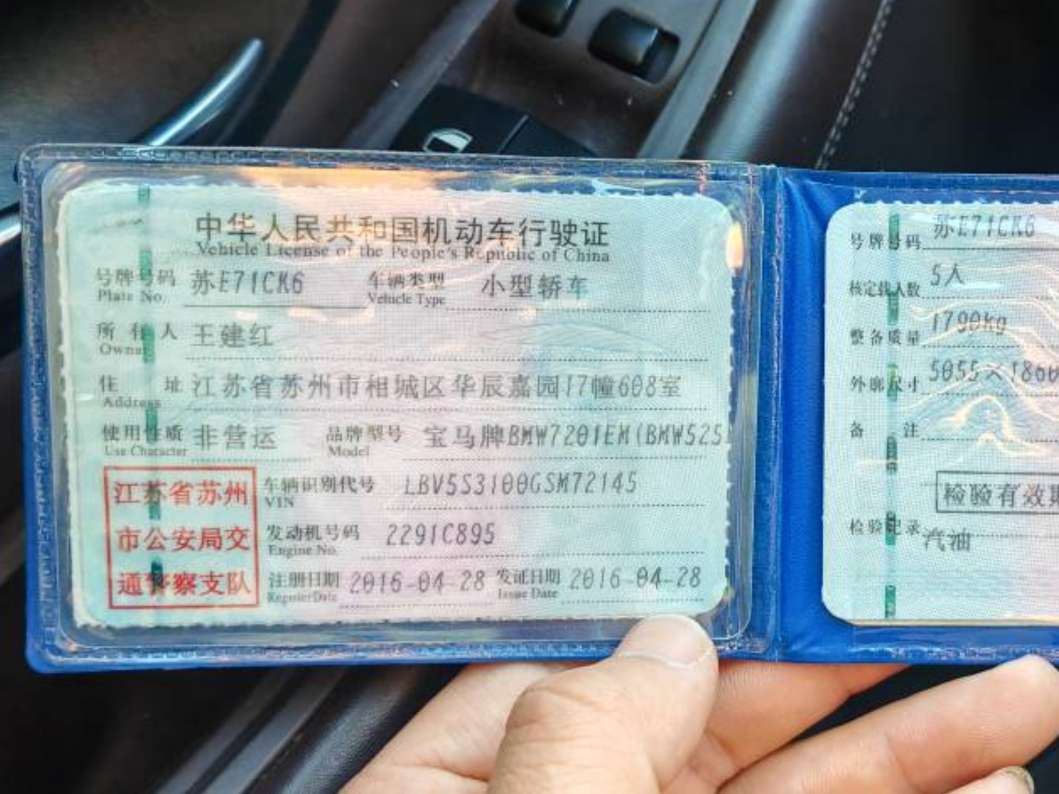 中华人民共和国机动车行驶证
Vehicle License of the People's Republic of China
号牌号码 苏E71CK6 车辆类型 小型轿车
Plate No. Vehicle Type
所有人 王建红
Owner
住址 江苏省苏州市相城区华辰嘉园17幢608室
Address
使用性质 非营运 品牌型号 宝马牌BMW7201EM(BMW525
Use Character Model
江苏省苏州
市公安局交
通警察支队
车辆识别代号 LBV5S3100GSM72145
VIN
发动机号码 2291C895
Engine No.
注册日期 2016-04-28 发证日期 2016-04-28
Register Date Issue Date
号牌号码 苏E71CK6
核定载人数 5人
整备质量 1790kg
外廓尺寸 5055×1860
备注
检验有效期
检验记录 汽油